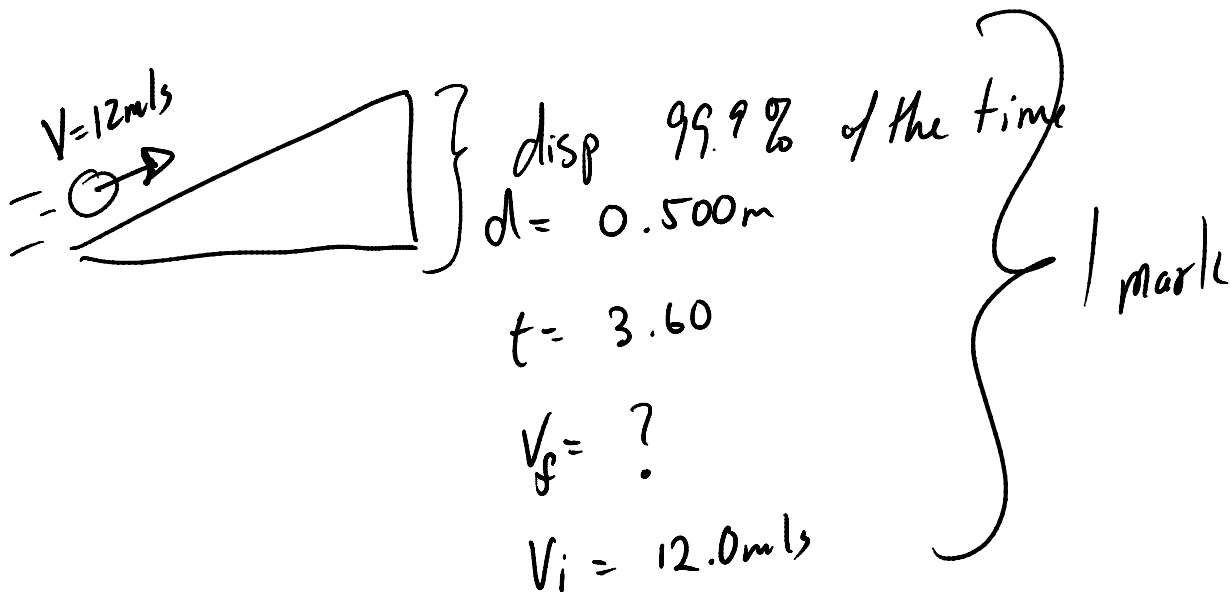 V=12m/s
disp 99.9% of the time
d= 0.500m
t= 3.60
Vf= ?
Vi = 12.0m/s
1 mark